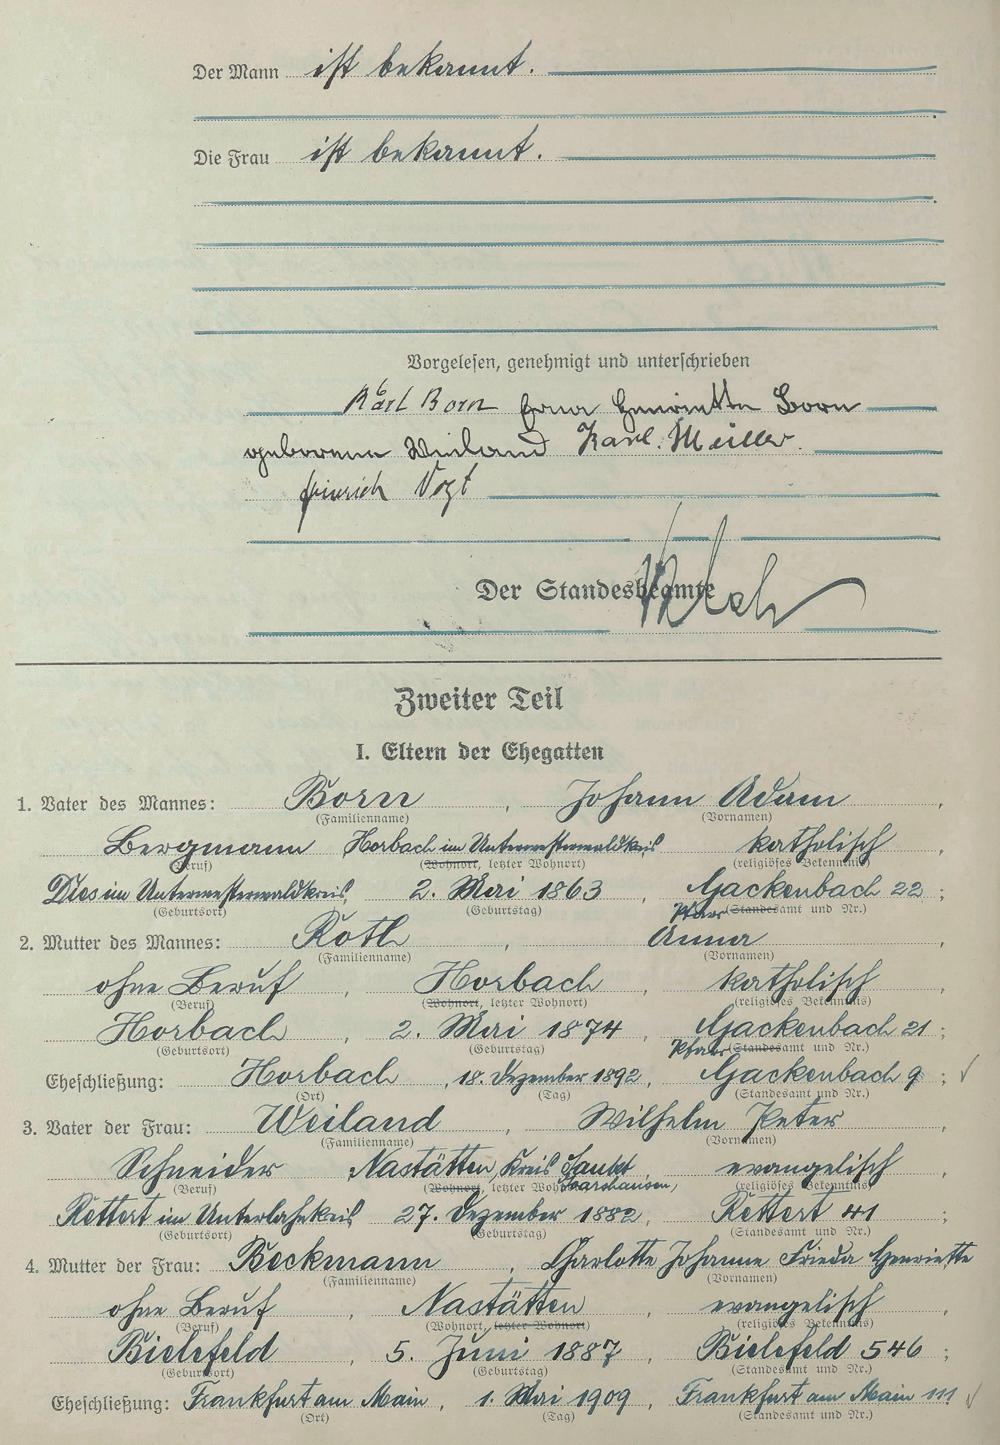 Der Mann ist bekannt.
Die Frau ist bekannt.
Vorgelesen, genehmigt und unterschrieben
Karl Born Erna Henriette Born
geborene Weiland Karl Müller.
Heinrich Vogt
Der Standesbeamte
Zweiter Teil
I. Eltern der Ehegatten
1. Vater des Mannes: Born, Johann Adam,
(Familienname) (Vornamen)
Bergmann Horbach im Unterwesterwaldkreis katholisch,
(Beruf) (Wohnort, letzter Wohnort) (religiöses Bekenntnis)
Dies im Unterwesterwaldkreis, 2. Mai 1863, Gackenbach 22;
(Geburtsort) (Geburtstag) Pfarr (Standesamt und Nr.)
2. Mutter des Mannes: Roth, Anna,
(Familienname) (Vornamen)
ohne Beruf, Horbach, katholisch,
(Beruf) (Wohnort, letzter Wohnort) (religiöses Bekenntnis)
Horbach, 2. Mai 1874, Gackenbach 21;
(Geburtsort) (Geburtstag) Pfarr (Standesamt und Nr.)
Eheschließung: Horbach, 18. Dezember 1892, Gackenbach 9;
(Ort) (Tag) (Standesamt und Nr.)
3. Vater der Frau: Weiland, Wilhelm Peter,
(Familienname) (Vornamen)
Schneider Nastätten, Kreis Sankt evangelisch,
(Beruf) (Wohnort, letzter Wohnort) Goarshausen, (religiöses Bekenntnis)
Rettert im Unterlahnkreis 27. Dezember 1882, Rettert 41;
(Geburtsort) (Geburtstag) (Standesamt und Nr.)
4. Mutter der Frau: Beckmann, Charlotte Johanne Frieda Henriette
(Familienname) (Vornamen)
ohne Beruf, Nastätten, evangelisch,
(Beruf) (Wohnort, letzter Wohnort) (religiöses Bekenntnis)
Bielefeld, 5. Juni 1887, Bielefeld 546;
(Geburtsort) (Geburtstag) (Standesamt und Nr.)
Eheschließung: Frankfurt am Main, 1. Mai 1909, Frankfurt am Main
(Ort) (Tag) (Standesamt und Nr.)